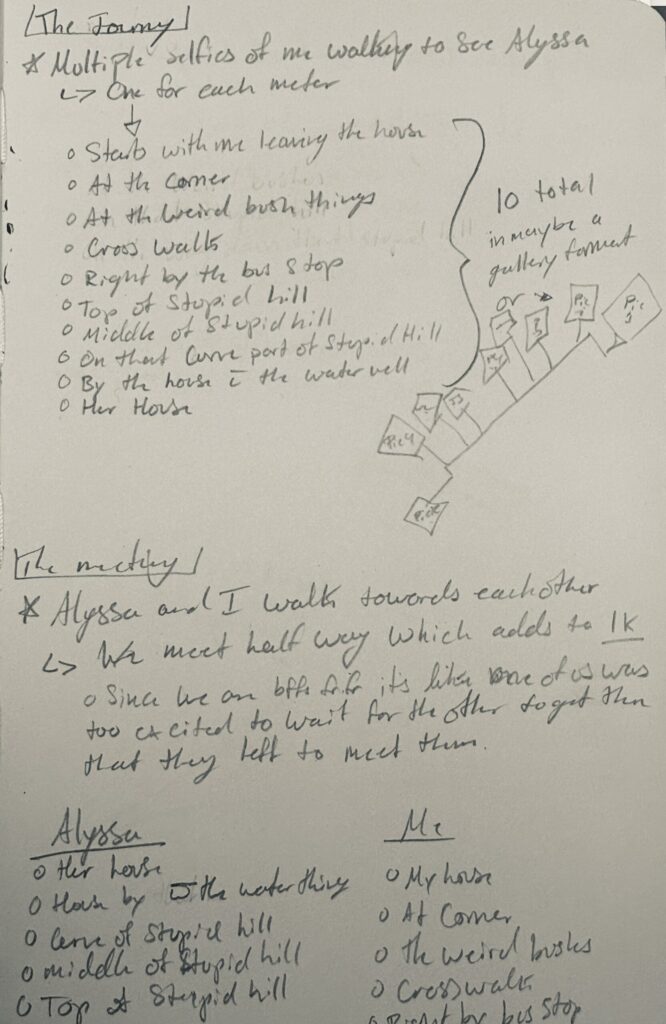 The Journy
* Multiple selfies of me walking to see Alyssa
↳ One for each meter
o Starts with me leaving the house
o At the Corner
o At the weird bush things
o Cross walk
o Right by the bus stop
o Top of Stupid hill
o Middle of Stupid hill
o On that Curve part of Stupid Hill
o By the house c̄ the water well
o Her House
10 total
in maybe a
gallery format
or →
Pic
Pic
3
Pic 4
Pic
The meeting
* Alyssa and I walk towards each other
↳ We meet half way which adds to 1k
o Since we are bffs its like one of us was
too excited to wait for the other to get there
that they left to meet them.
Alyssa
o Her house
o House by c̄ the water thing
o Curve of Stupid hill
o Middle of Stupid hill
o Top of Stupid hill
Me
o My house
o At Corner
o The weird bushes
o Crosswalk
o Right by bus stop